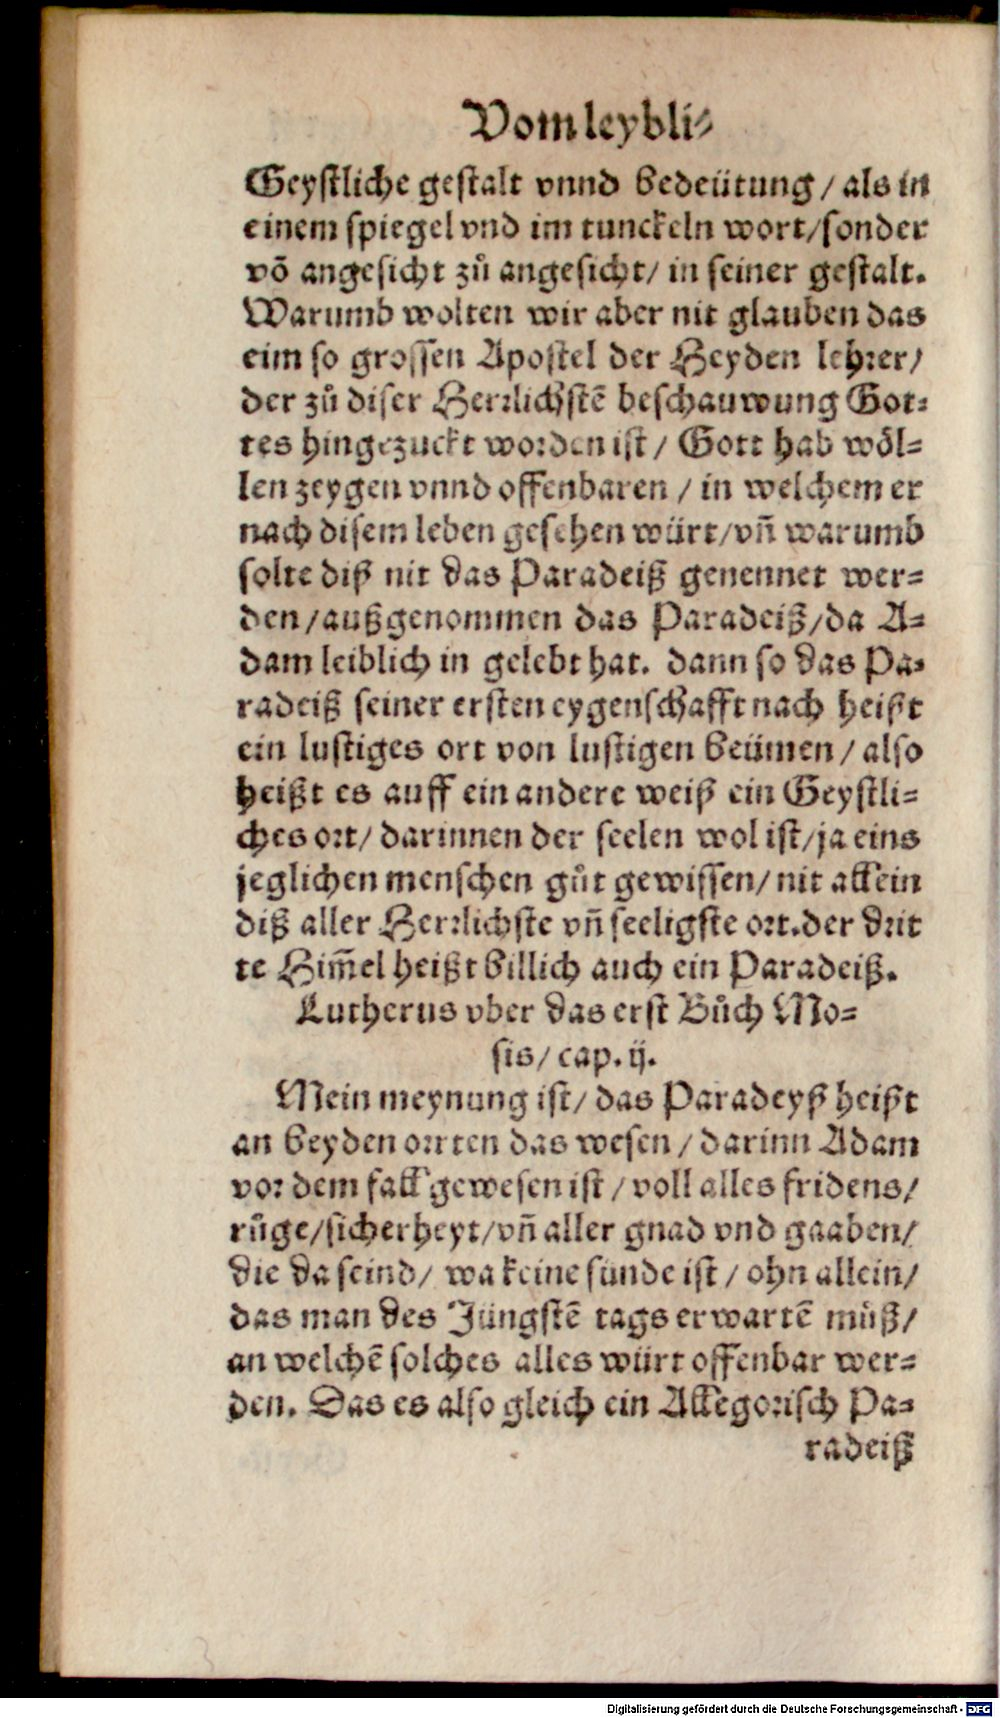 Vom leybli⸗
Geystliche gestalt vnnd bedeütung / als in
einem spiegel vnd im tunckeln wort/sonder
võ angesicht zů angesicht/ in seiner gestalt.
Warumb wolten wir aber nit glauben das
eim so grossen Apostel der Heyden lehrer/
der zů diser Herrlichstẽ beschauwung Got⸗
tes hingezuckt worden ist / Gott hab wöl⸗
len zeygen vnnd offenbaren / in welchem er
nach disem leben gesehen würt/vñ warumb
solte diß nit das Paradeiß genennet wer⸗
den/außgenommen das Paradeiß/da A⸗
dam leiblich in gelebt hat. dann so das Pa⸗
radeiß seiner ersten eygenschafft nach heißt
ein lustiges ort von lustigen beümen / also
heißt es auff ein andere weiß ein Geystli⸗
ches ort/ darinnen der seelen wol ist/ja eins
jeglichen menschen gůt gewissen/ nit allein
diß aller Herrlichste vñ seeligste ort.der drit
te Him̃el heißt billich auch ein Paradeiß.
Lutherus vber das erst Bůch Mo⸗
sis/ cap. ij.
Mein meynung ist/ das Paradeyß heißt
an beyden orrten das wesen / darinn Adam
vor dem fall gewesen ist / voll alles fridens/
růge/sicherheyt/vñ aller gnad vnd gaaben/
die da seind/ wa keine sünde ist / ohn allein/
das man des Jüngstẽ tags erwartẽ můß/
an welchẽ solches alles würt offenbar wer⸗
den. Das es also gleich ein Allegorisch Pa⸗
radeiß
Digitalisierung gefördert durch die Deutsche Forschungsgemeinschaft - DFG